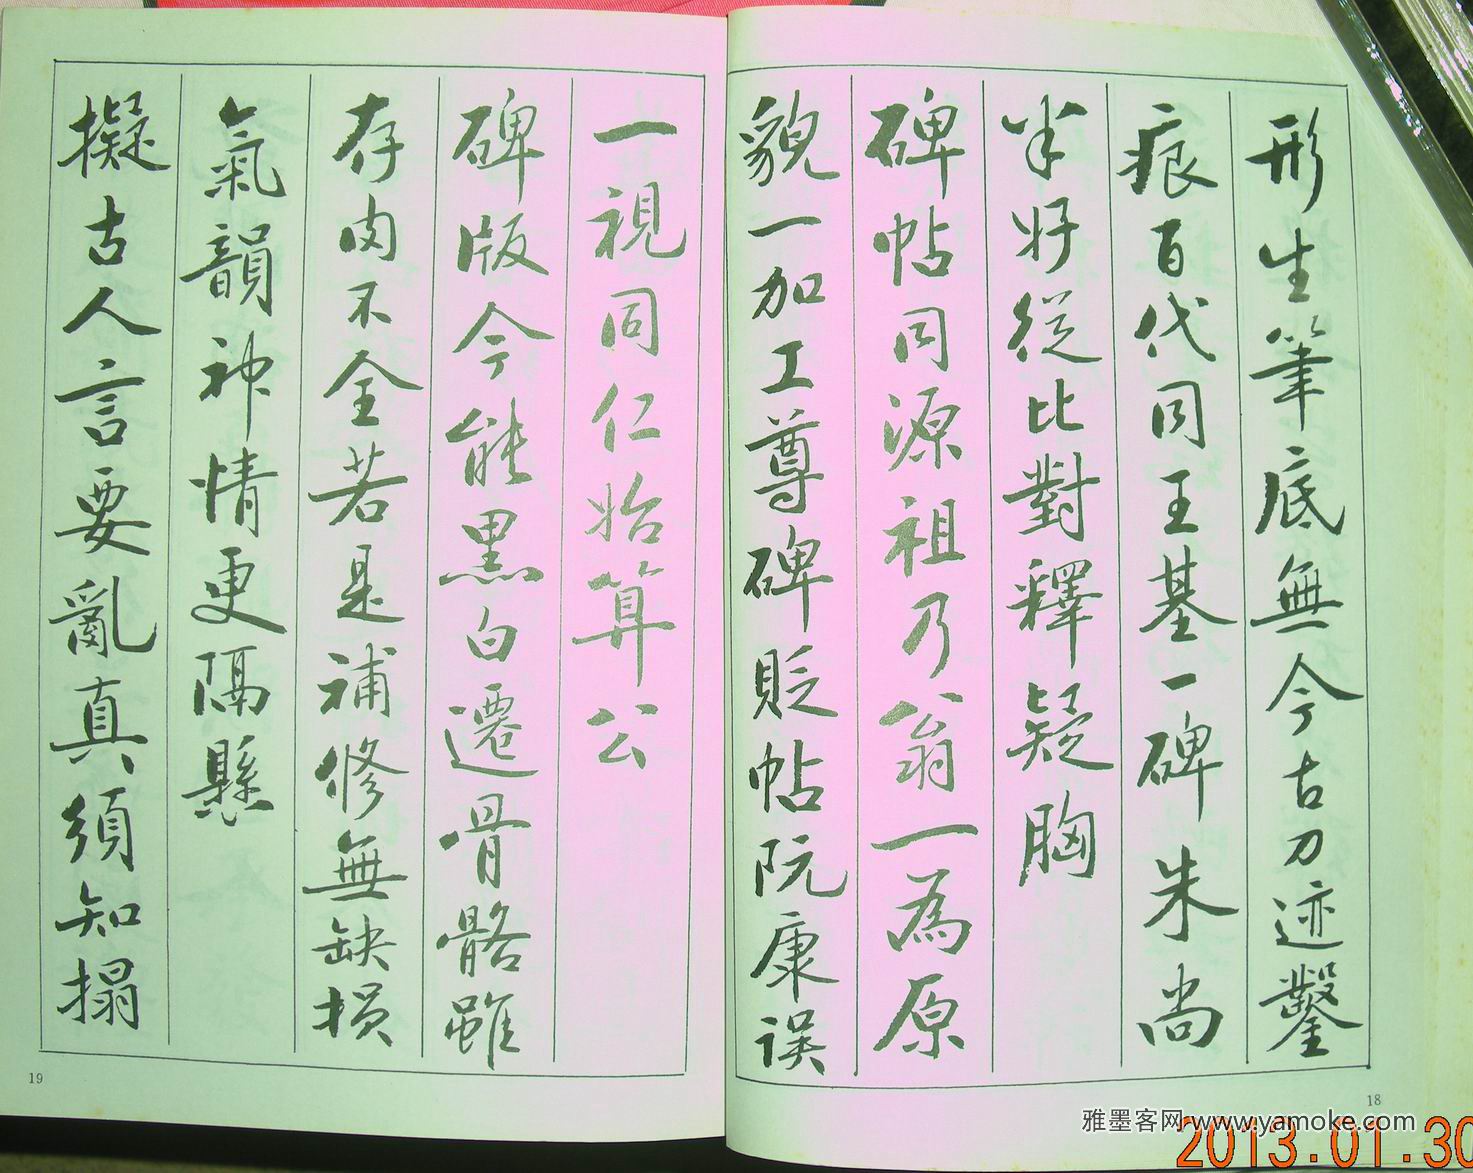 形生筆底無今古刀迹鑿
痕百代同王基一碑朱尚
半好從比對釋疑胸
碑帖同源祖乃翁一為原
貌一加工尊碑貶帖阮康誤
一視同仁始算公
碑版今能黑白遷骨骼雖
存肉不全若是補修無缺損
氣韻神情更隔懸
擬古人言要亂真須知搨
19
18
雅墨客网 www.yamoke.com
2013.01.30